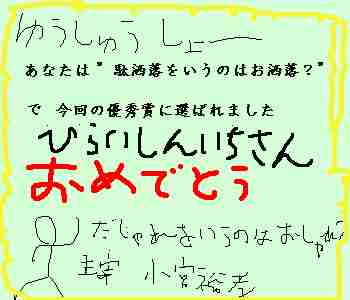 ゆうしゅうしょー
あなたは" 駄洒落をいうのはお洒落?"
で 今回の優秀賞に選ばれました
ひらいしんいちさん
おめでとう
だじゃれをいうのはおしゃれ
主宰 小宮裕孝